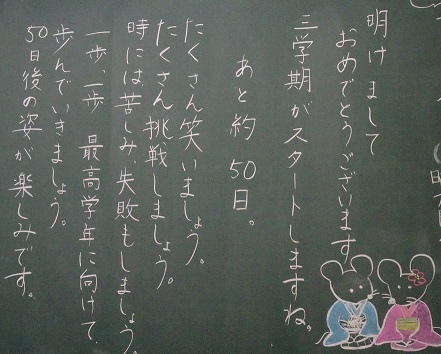 明けまして
おめでとうございます
三学期がスタートしますね。
あと約50日。
たくさん笑いましょう。
たくさん挑戦しましょう。
時には苦しみ、失敗もしましょう。
一歩、一歩 最高学年に向けて、
歩んでいきましょう。
50日後の姿が楽しみです。